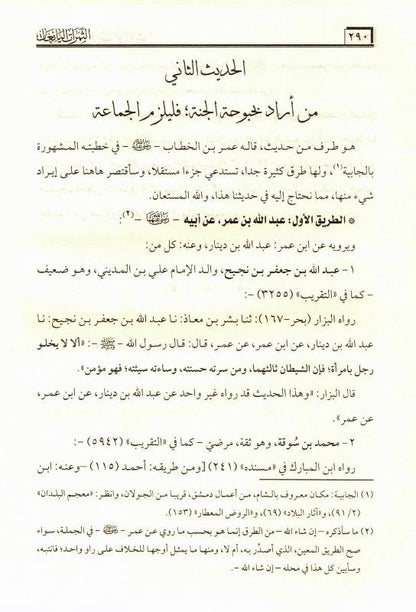 ٢٩٠
الثمرات اليانعات
الحديث الثاني
من أراد بحبوحة الجنة؛ فليلزم الجماعة
هو طرف من حديث، قاله عمر بن الخطاب – رضي الله عنه – في خطبته المشهورة
بالجابية(١)، ولها طرق كثيرة جدا، تستدعي جزءا مستقلا، وسأقتصر هاهنا على إيراد
شيء منها، مما نحتاج إليه في حديثنا هذا، والله المستعان.
* الطريق الأول: عبد الله بن عمر، عن أبيه – رضي الله عنهما –(٢):
ويرويه عن ابن عمر: عبد الله بن دينار، وعنه: كل من:
١– عبد الله بن جعفر بن نجيح، والد الإمام علي بن المديني، وهو ضعيف
– كما في «التقريب» (٣٢٥٥) –:
رواه البزار (بحر–١٦٧): ثنا بشر بن معاذ: نا عبد الله بن جعفر بن نجيح: نا
عبد الله بن دينار، عن ابن عمر، عن عمر، قال: قال رسول الله – ﷺ –: «ألا لا يخلو
رجل بامرأة؛ فإن الشيطان ثالثهما، ومن سرته حسنته، وساءته سيئته؛ فهو مؤمن».
قال البزار: «وهذا الحديث قد رواه غير واحد عن عبد الله بن دينار، عن ابن عمر،
عن عمر».
٢– محمد بن سُوقة، وهو ثقة، مرضيّ – كما في «التقريب» (٥٩٤٢) –:
رواه ابن المبارك في «مسنده» (٢٤١) [ومن طريقه: أحمد (١١٥) –وعنه: ابن
(١) الجابية: مكان معروف بالشام، من أعمال دمشق، قريبا من الجولان، وانظر: «معجم البلدان»
(٢/ ٩١)، و«آثار البلاد» (٦٩)، و«الروض المعطار» (١٥٣).
(٢) ما سأذكره – إن شاء الله – من الطرق إنما هو بحسب ما روي عن عمر – رضي الله عنه – في الجملة، سواء
صح الطريق المعين، الذي أصدّر به، أم لا، ومنها ما يمثل أوجها للخلاف على راو واحد؛ فانتبه،
وسأبين كل هذا في محله – إن شاء الله –.